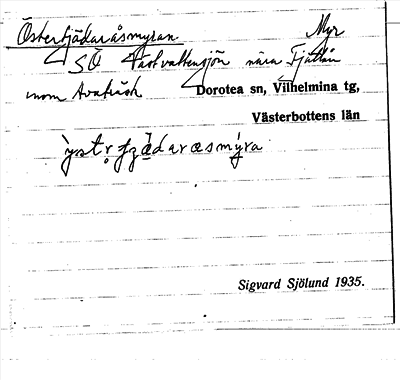 Österfjädaråsmyran. Myr
SÖ Västvattensjön nära Fjällån
inom Avaträsk Dorotea sn, Vilhelmina tg,
Västerbottens län
Sigvard Sjölund 1935.